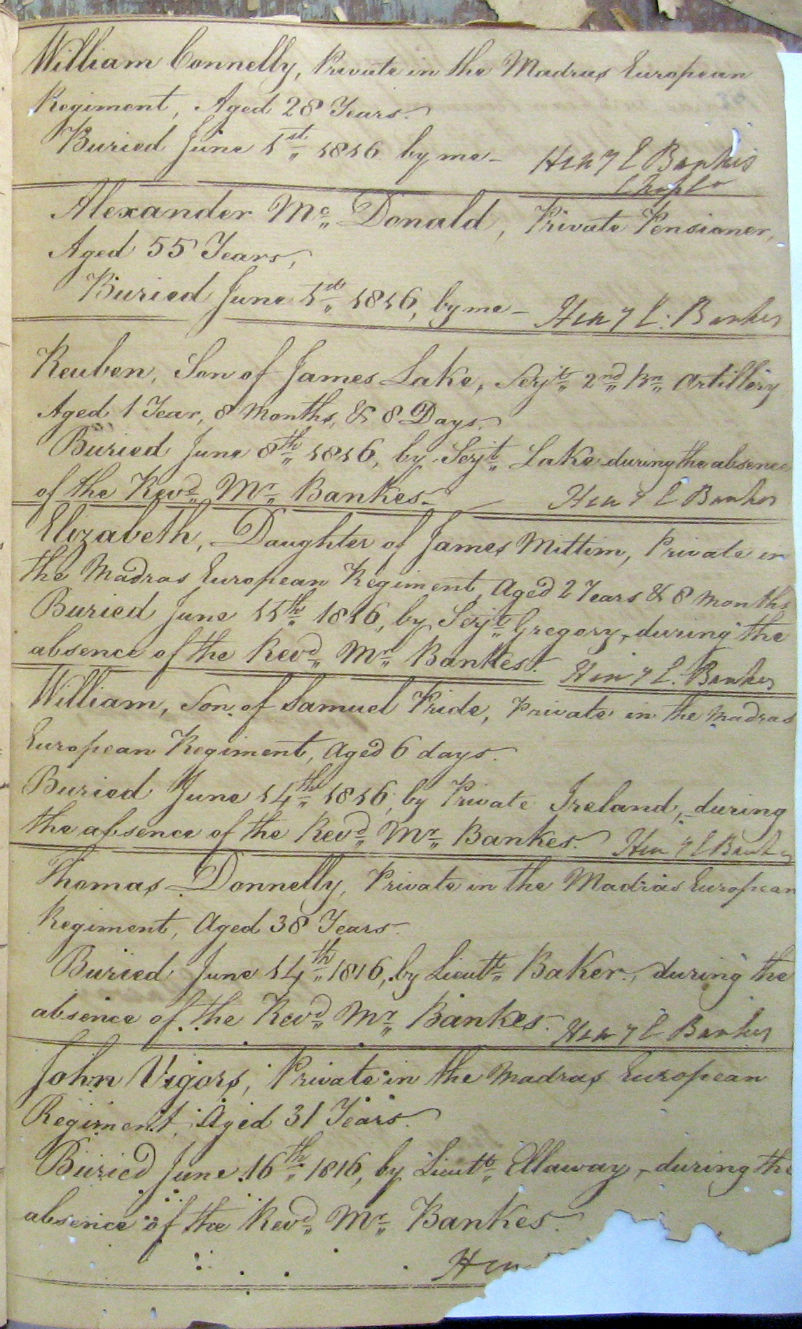 William Connelly, Private in the Madras European
Regiment, Aged 28 Years.
Buried June 1st 1816 by me - Henry C Bankes
Chapln
Alexander Mc Donald, Private Pensioner,
Aged 55 Years,
Buried June 1st 1816, by me - Henry C. Bankes
Reuben, Son of James Lake, Serjt 2nd Bn Artillery
Aged 1 Year, 8 Months, & 8 Days.
Buried June 8th 1816, by Serjt Lake during the absence
of the Revd Mr Bankes. Henry C Bankes
Elizabeth, Daughter of James Mittim, Private in
the Madras European Regiment, Aged 2 Years & 8 Months
Buried June 11th 1816, by Serjt Gregory, during the
absence of the Revd Mr Bankes. Henry C. Bankes
William, Son of Samuel Pride, Private in the Madras
European Regiment, Aged 6 days.
Buried June 14th 1816, by Private Ireland, during
the absence of the Revd Mr Bankes. Henry C Bankes
Thomas Donnelly, Private in the Madras European
Regiment, Aged 38 Years.
Buried June 14th 1816, by Lieutt Baker, during the
absence of the Revd Mr Bankes. Henry C Bankes
John Vigors, Private in the Madras European
Regiment, Aged 31 Years.
Buried June 16th 1816, by Lieutt Ellaway, during the
absence of the Revd Mr Bankes.
Hen